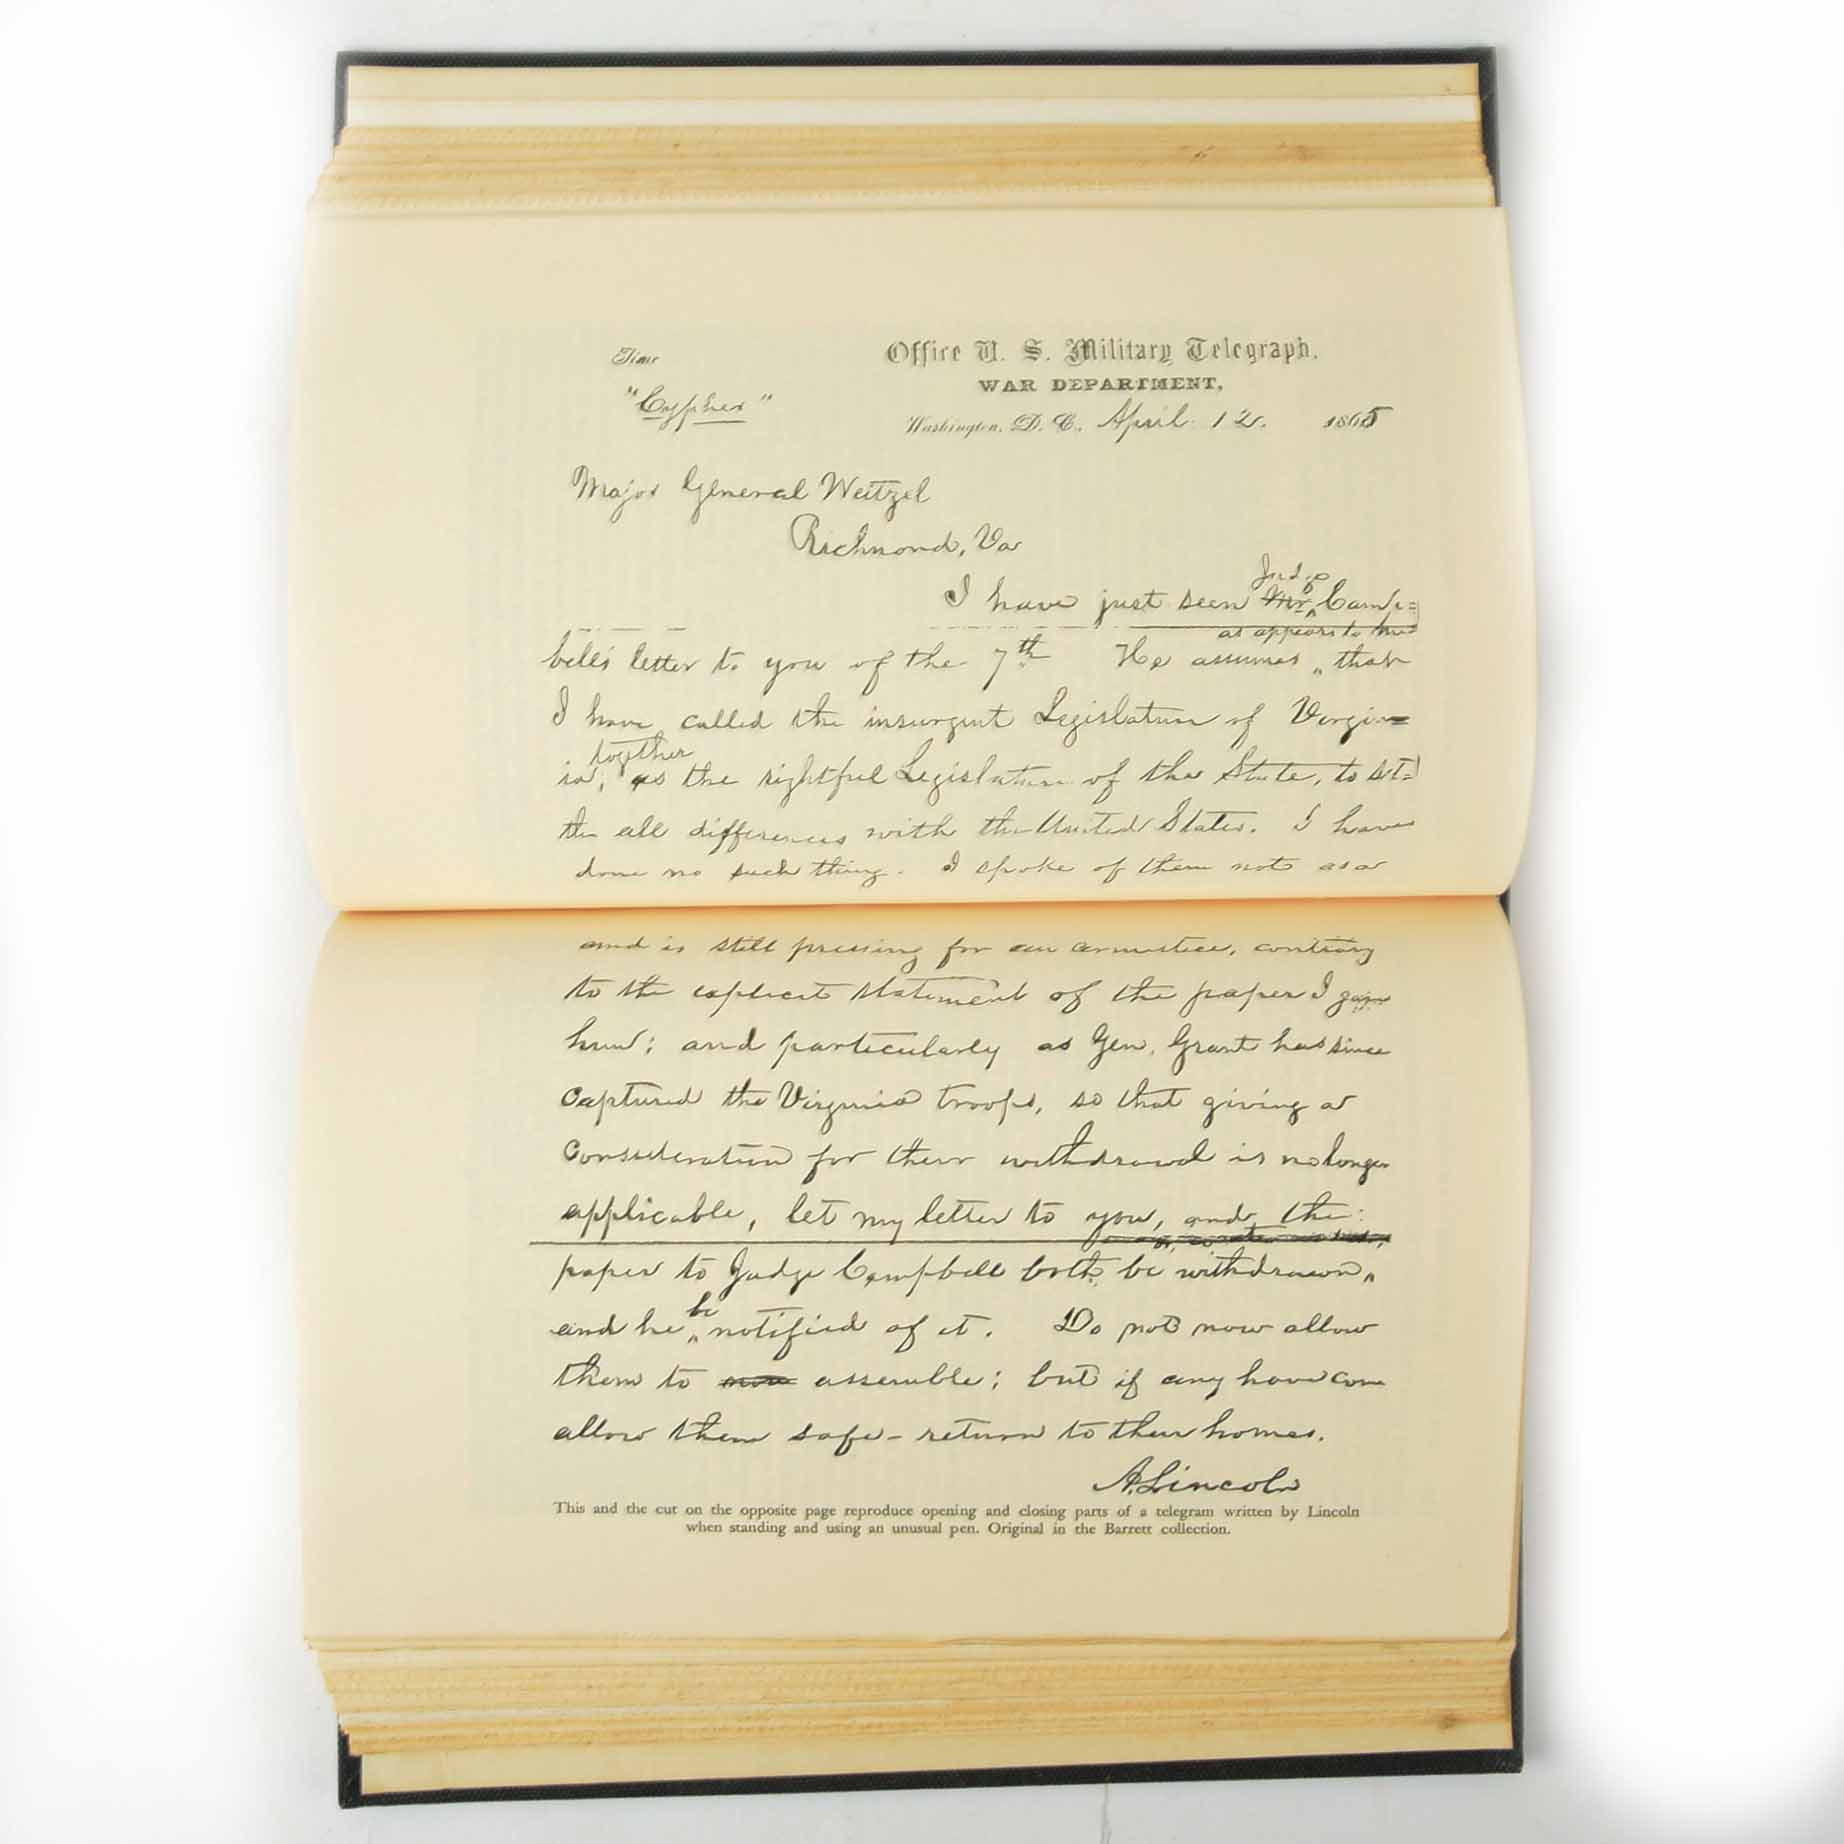 Time
Office U. S. Military Telegraph,
WAR DEPARTMENT,
"Cypher"
Washington, D. C., April 12. 1865
Major General Weitzel
Richmond, Va
Judge
I have just seen Mr. Camp=
as appears to me
bell's letter to you of the 7th He assumes that
I have called the insurgent Legislature of Virgin=
together
ia, as the rightful Legislature of the State, to set=
tle all differences with the United States. I have
done no such thing. I spoke of them not as a
and is still pressing for an armistice, contrary
to the explicit statement of the paper I gave
him; and particularly as Gen. Grant has since
captured the Virginia troops, so that giving a
consideration for their withdrawal is no longer
applicable, let my letter to you, and the
paper to Judge Campbell both be withdrawn,
be
and he notified of it. Do not now allow
them to now assemble; but if any have come
allow them safe-return to their homes.
A. Lincoln
This and the cut on the opposite page reproduce opening and closing parts of a telegram written by Lincoln
when standing and using an unusual pen. Original in the Barrett collection.